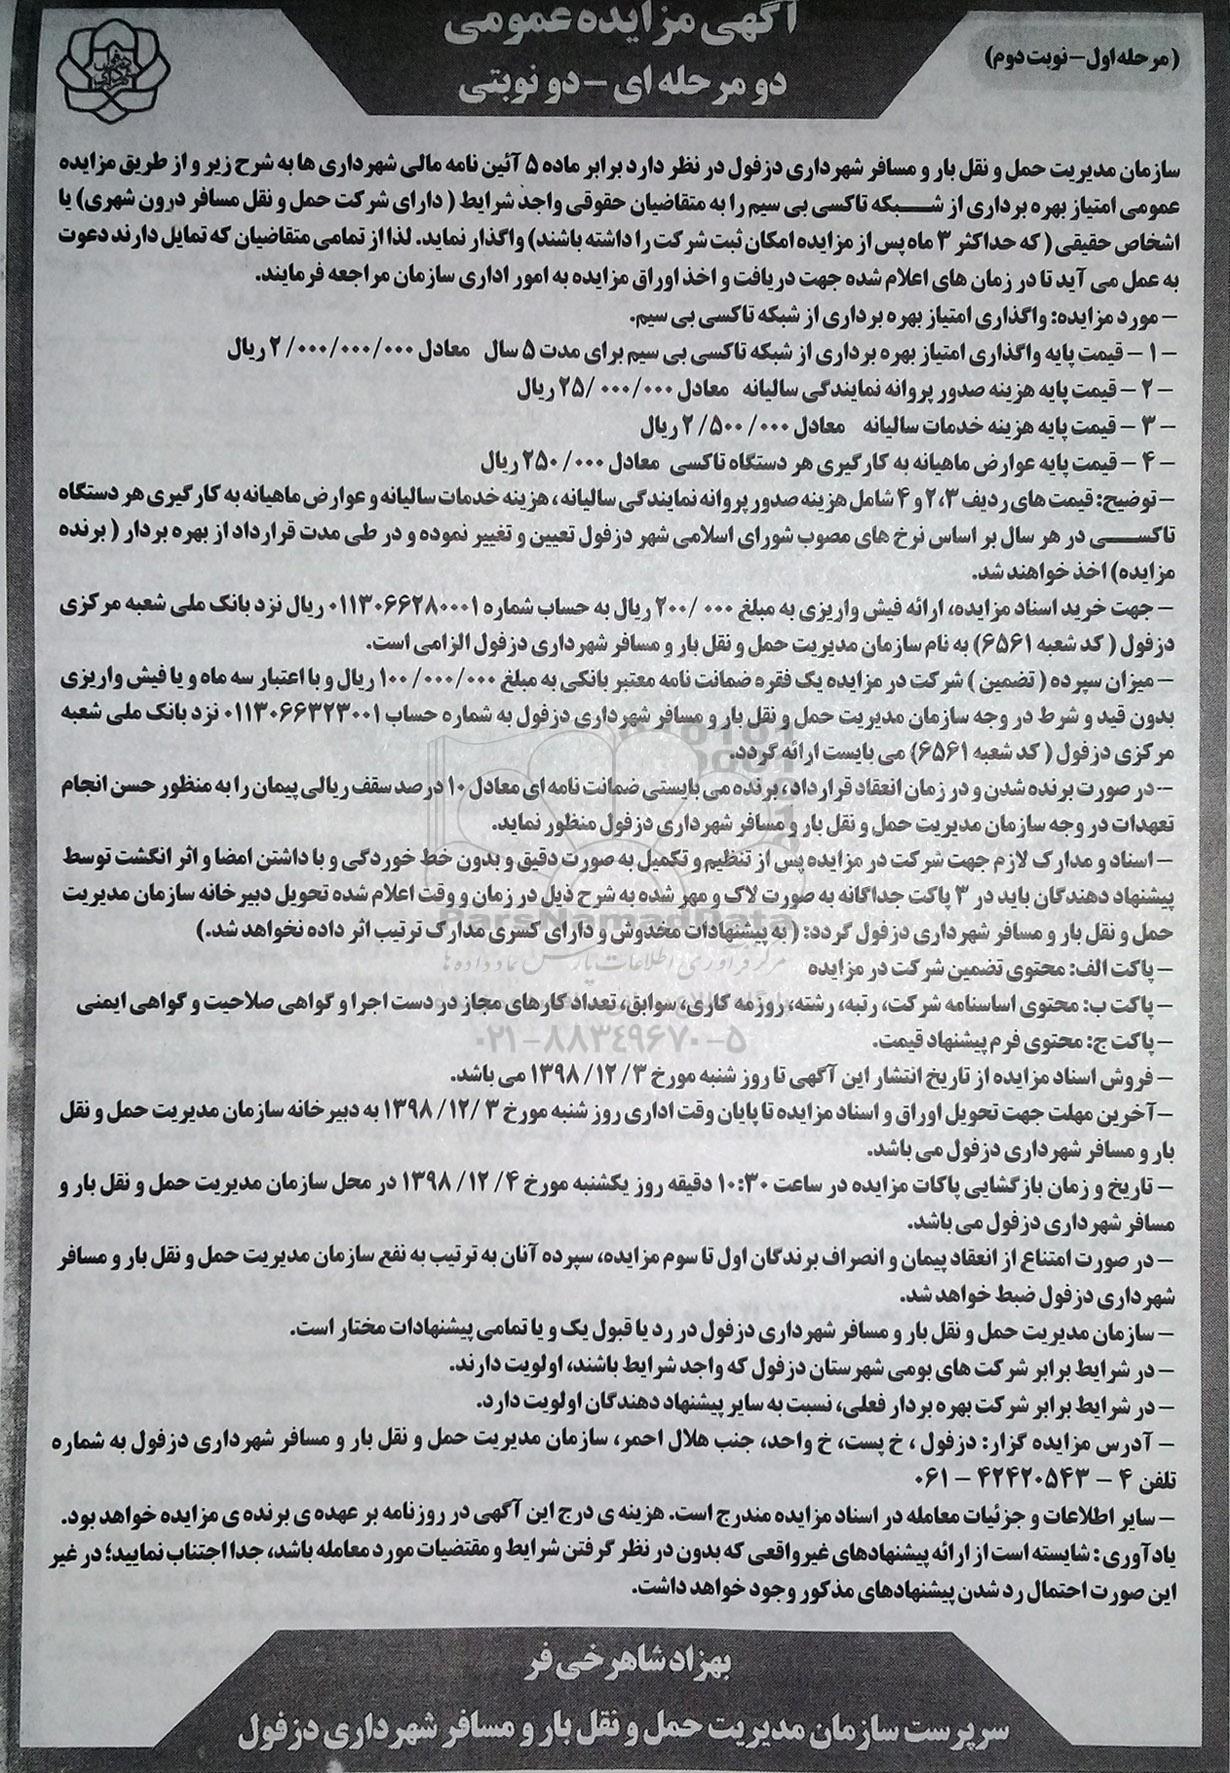 آگهی مزایده عمومی
(مرحله اول - نوبت دوم)
دو مرحله ای - دو نوبتی
سازمان مدیریت حمل و نقل بار و مسافر شهرداری دزفول در نظر دارد برابر ماده ۵ آئین نامه مالی شهرداری ها به شرح زیر و از طریق مزایده
عمومی امتیاز بهره برداری از شبکه تاکسی بی سیم را به متقاضیان حقوقی واجد شرایط ( دارای شرکت حمل و نقل مسافر درون شهری) یا
اشخاص حقیقی ( که حداکثر ۳ ماه پس از مزایده امکان ثبت شرکت را داشته باشند) واگذار نماید. لذا از تمامی متقاضیان که تمایل دارند دعوت
به عمل می آید تا در زمان های اعلام شده جهت دریافت و اخذ اوراق مزایده به امور اداری سازمان مراجعه فرمایند.
- مورد مزایده: واگذاری امتیاز بهره برداری از شبکه تاکسی بی سیم.
- ۱ - قیمت پایه واگذاری امتیاز بهره برداری از شبکه تاکسی بی سیم برای مدت ۵ سال معادل ۲/۰۰۰/۰۰۰/۰۰۰ ریال
- ۲ - قیمت پایه هزینه صدور پروانه نمایندگی سالیانه معادل ۲۵/۰۰۰/۰۰۰ ریال
- ۳ - قیمت پایه هزینه خدمات سالیانه معادل ۲/۵۰۰/۰۰۰ ریال
- ۴ - قیمت پایه عوارض ماهیانه به کارگیری هر دستگاه تاکسی معادل ۲۵۰/۰۰۰ ریال
- توضیح: قیمت های ردیف ۲،۳ و ۴ شامل هزینه صدور پروانه نمایندگی سالیانه ، هزینه خدمات سالیانه و عوارض ماهیانه به کارگیری هر دستگاه
تاکسی در هر سال بر اساس نرخ های مصوب شورای اسلامی شهر دزفول تعیین و تغییر نموده و در طی مدت قرارداد از بهره بردار ( برنده
مزایده) اخذ خواهند شد.
- جهت خرید اسناد مزایده، ارائه فیش واریزی به مبلغ ۲۰۰/۰۰۰ ریال به حساب شماره ۰۱۱۳۰۶۶۲۸۰۰۰۱ ریال نزد بانک ملی شعبه مرکزی
دزفول ( کد شعبه ۶۵۶۱) به نام سازمان مدیریت حمل و نقل بار و مسافر شهرداری دزفول الزامی است.
- میزان سپرده ( تضمین ) شرکت در مزایده یک فقره ضمانت نامه معتبر بانکی به مبلغ ۱۰۰/۰۰۰/۰۰۰ ریال و با اعتبار سه ماه و یا فیش واریزی
بدون قید و شرط در وجه سازمان مدیریت حمل و نقل بار و مسافر شهرداری دزفول به شماره حساب ۰۱۱۳۰۶۶۳۲۳۰۰۱ نزد بانک ملی شعبه
مرکزی دزفول ( کد شعبه ۶۵۶۱) می بایست ارائه گردد.
- در صورت برنده شدن و در زمان انعقاد قرارداد، برنده می بایستی ضمانت نامه ای معادل ۱۰ درصد سقف ریالی پیمان را به منظور حسن انجام
تعهدات در وجه سازمان مدیریت حمل و نقل بار و مسافر شهرداری دزفول منظور نماید.
- اسناد و مدارک لازم جهت شرکت در مزایده پس از تنظیم و تکمیل به صورت دقیق و بدون خط خوردگی و با داشتن امضا و اثر انگشت توسط
پیشنهاد دهندگان باید در ۳ پاکت جداگانه به صورت لاک و مهر شده به شرح ذیل در زمان و وقت اعلام شده تحویل دبیرخانه سازمان مدیریت
حمل و نقل بار و مسافر شهرداری دزفول گردد: ( به پیشنهادات مخدوش و دارای کسری مدارک ترتیب اثر داده نخواهد شد.)
ParsNamadData
مرکز فرآوری اطلاعات پارس نماد داده ها
- پاکت الف: محتوی تضمین شرکت در مزایده
- پاکت ب: محتوی اساسنامه شرکت، رتبه، رشته، روزمه کاری، سوابق، تعداد کارهای مجاز در دست اجرا و گواهی صلاحیت و گواهی ایمنی
۰۲۱-۸۸۳۴۹۶۷۰-۵
- پاکت ج: محتوی فرم پیشنهاد قیمت.
- فروش اسناد مزایده از تاریخ انتشار این آگهی تا روز شنبه مورخ ۱۳۹۸/۱۲/۳ می باشد.
- آخرین مهلت جهت تحویل اوراق و اسناد مزایده تا پایان وقت اداری روز شنبه مورخ ۱۳۹۸/۱۲/۳ به دبیرخانه سازمان مدیریت حمل و نقل
بار و مسافر شهرداری دزفول می باشد.
- تاریخ و زمان بازگشایی پاکات مزایده در ساعت ۱۰:۳۰ دقیقه روز یکشنبه مورخ ۱۳۹۸/۱۲/۴ در محل سازمان مدیریت حمل و نقل بار و
مسافر شهرداری دزفول می باشد.
- در صورت امتناع از انعقاد پیمان و انصراف برندگان اول تا سوم مزایده، سپرده آنان به ترتیب به نفع سازمان مدیریت حمل و نقل بار و مسافر
شهرداری دزفول ضبط خواهد شد.
- سازمان مدیریت حمل و نقل بار و مسافر شهرداری دزفول در رد یا قبول یک و یا تمامی پیشنهادات مختار است.
- در شرایط برابر شرکت های بومی شهرستان دزفول که واجد شرایط باشند، اولویت دارند.
- در شرایط برابر شرکت بهره بردار فعلی، نسبت به سایر پیشنهاد دهندگان اولویت دارد.
- آدرس مزایده گزار: دزفول ، خ پست، خ واحد، جنب هلال احمر، سازمان مدیریت حمل و نقل بار و مسافر شهرداری دزفول به شماره
تلفن ۴ - ۴۲۴۲۰۵۴۳ - ۰۶۱
- سایر اطلاعات و جزئیات معامله در اسناد مزایده مندرج است. هزینه ی درج این آگهی در روزنامه بر عهده ی برنده ی مزایده خواهد بود.
یادآوری : شایسته است از ارائه پیشنهادهای غیرواقعی که بدون در نظر گرفتن شرایط و مقتضیات مورد معامله باشد، جدا اجتناب نمایید؛ در غیر
این صورت احتمال رد شدن پیشنهادهای مذکور وجود خواهد داشت.
بهزاد شاهرخی فر
سرپرست سازمان مدیریت حمل و نقل بار و مسافر شهرداری دزفول